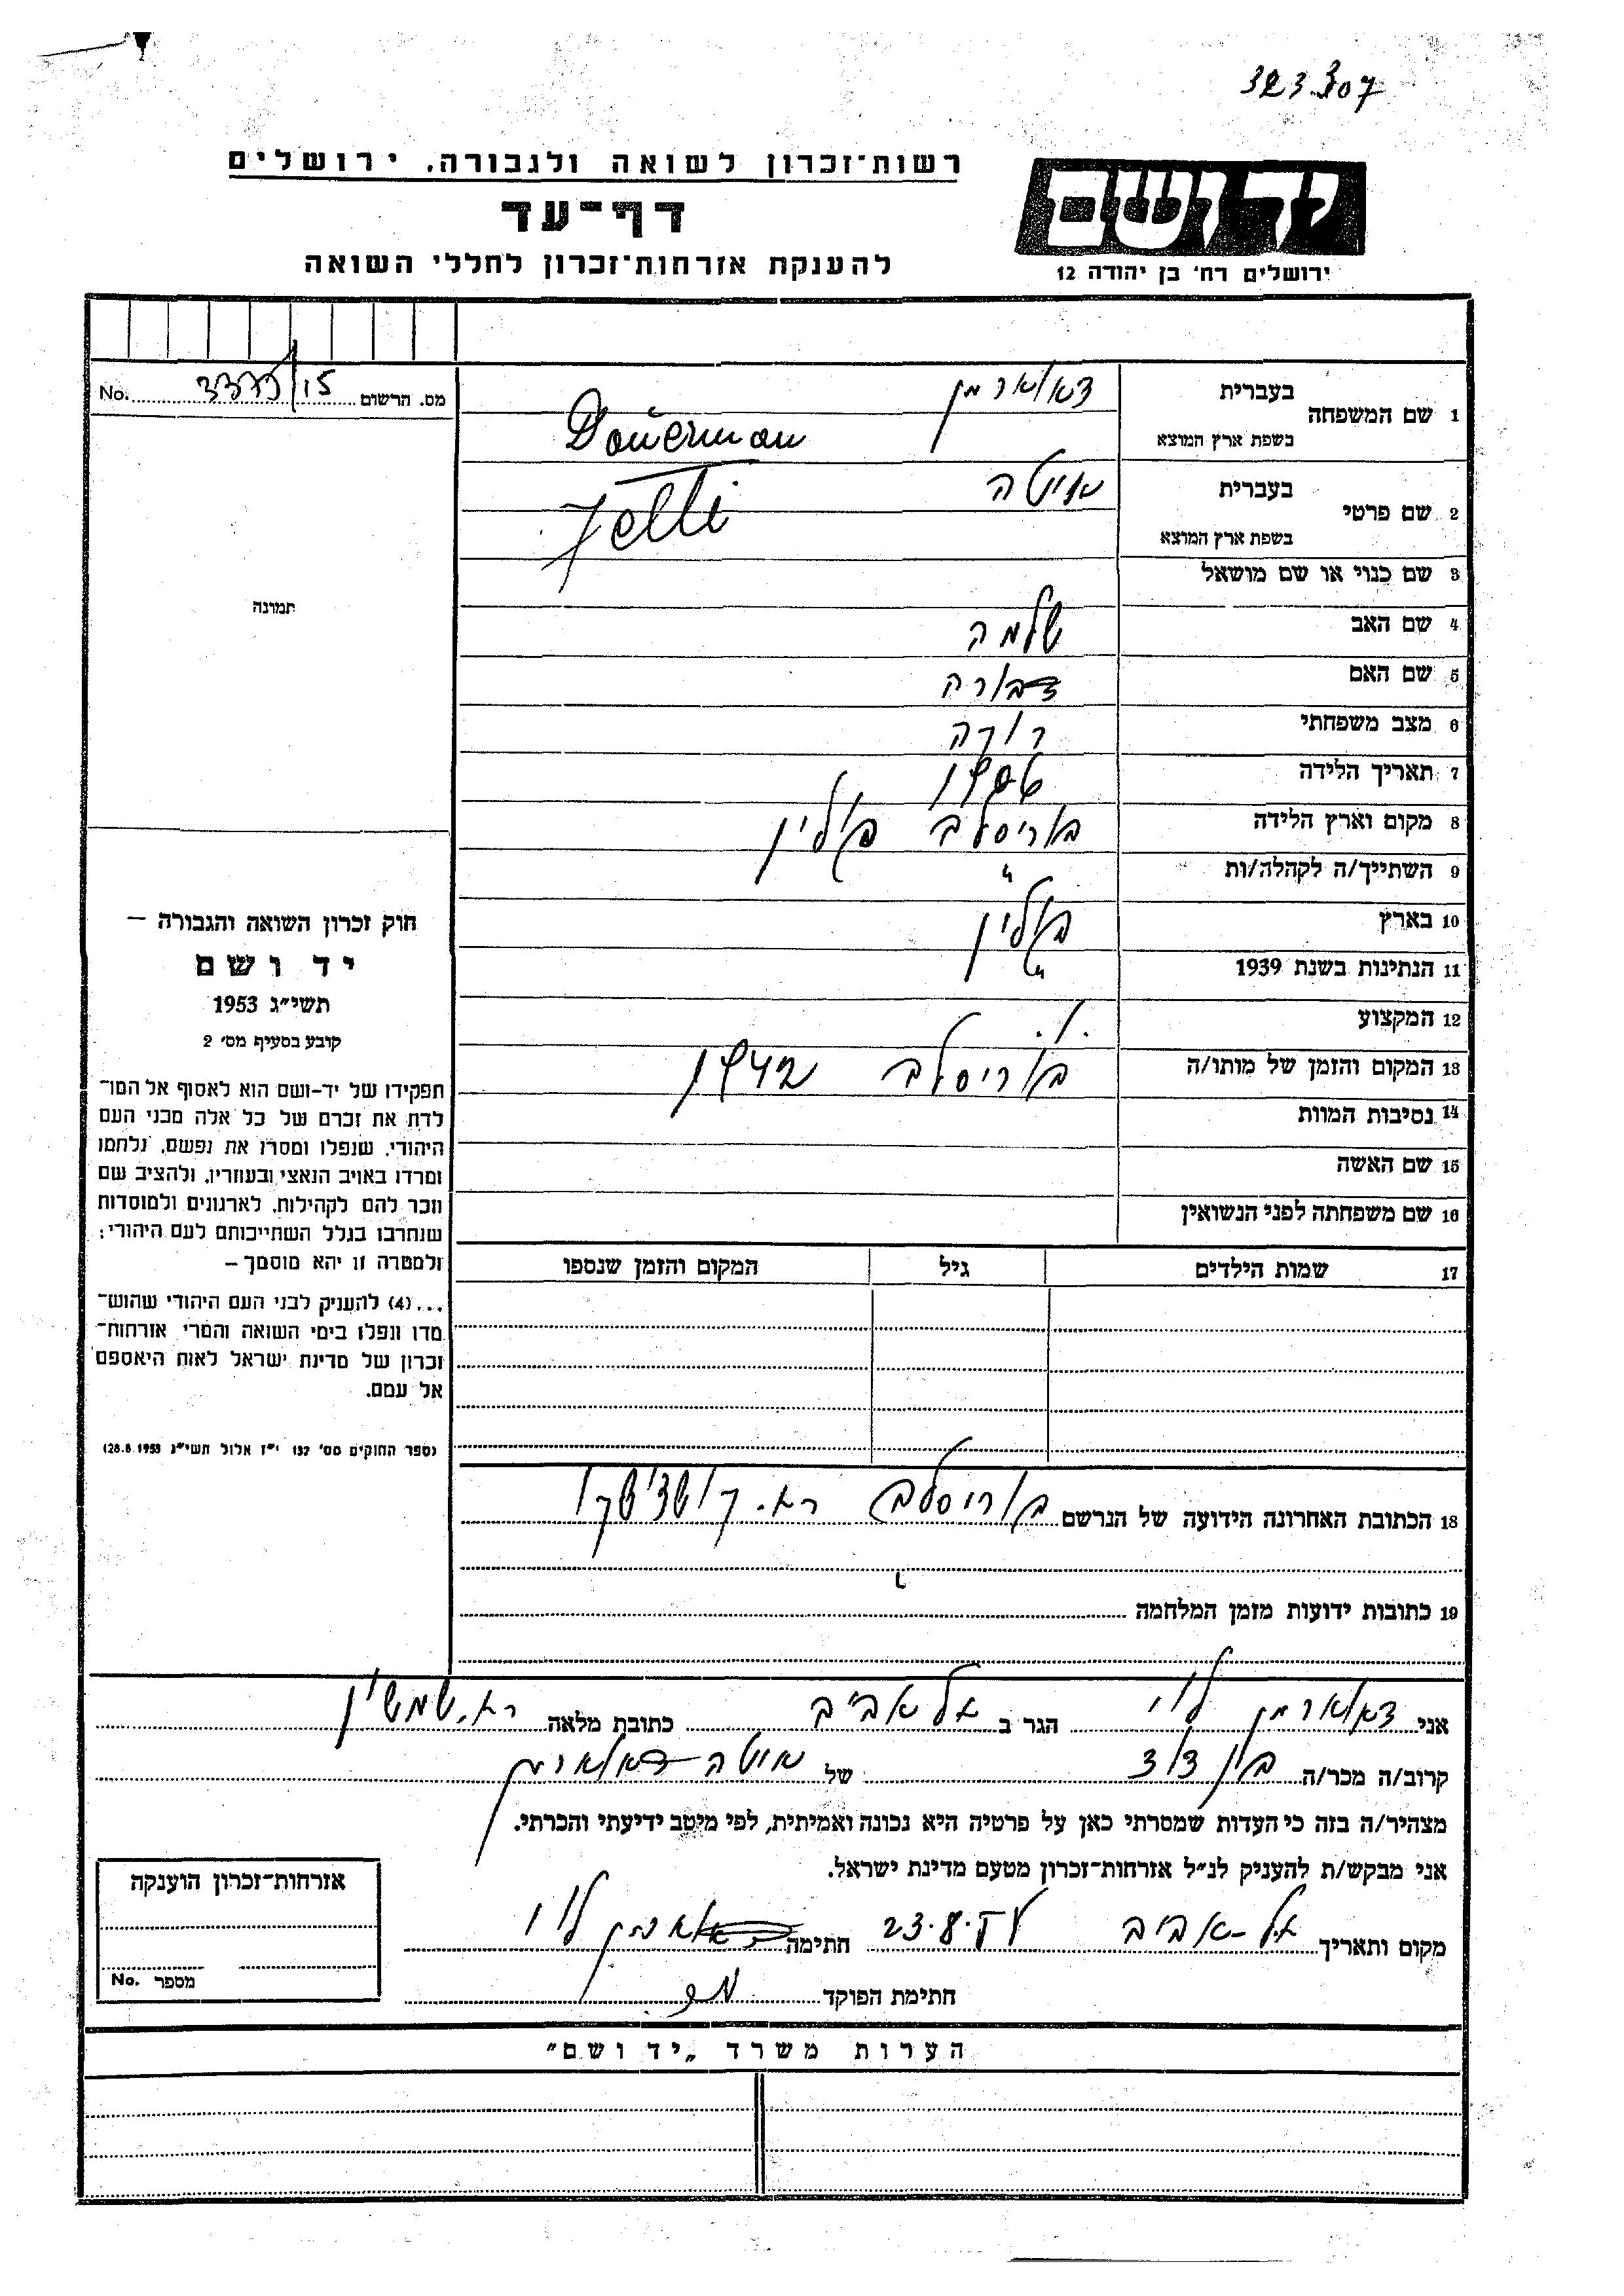 323.307
רשות־זכרון לשואה ולגבורה. ירושלים
דף־עד
להענקת אזרחות־זכרון לחללי השואה
יד ושם
ירושלים רח׳ בן יהודה 12
מס. הרשום 15/ No.
תמונה
חוק זכרון השואה והגבורה —
יד ושם
תשי״ג 1953
קובע בסעיף מס׳ 2
תפקידו של יד-ושם הוא לאסוף אל המו־
לדת את זכרם של כל אלה מבני העם
היהודי, שנפלו ומסרו את נפשם, נלחמו
ומרדו באויב הנאצי ובעוזריו, ולהציב שם
וזכר להם לקהילות, לארגונים ולמוסדות
שנחרבו בגלל השתייכותם לעם היהודי;
ולמטרה זו יהא מוסמך —
...(4) להעניק לבני העם היהודי שהוש־
מדו ונפלו בימי השואה והמרי אזרחות־
זכרון של מדינת ישראל לאות היאספם
אל עמם.
(ספר החוקים מס׳ 132 י״ז אלול תשי״ג 28.8.1953)
1 שם המשפחה בעברית דאוארמן
בשפת ארץ המוצא Dauerman
2 שם פרטי בעברית איטה
בשפת ארץ המוצא Jetti
3 שם כנוי או שם מושאל
4 שם האב שלמה
5 שם האם דבורה
6 מצב משפחתי
7 תאריך הלידה
8 מקום וארץ הלידה בוריסלב פולין
9 השתייך/ה לקהלה/ות "
10 בארץ פולין
11 הנתינות בשנת 1939 "
12 המקצוע
13 המקום והזמן של מותו/ה בוריסלב 1942
14 נסיבות המוות
15 שם האשה
16 שם משפחתה לפני הנשואין
17 שמות הילדים גיל המקום והזמן שנספו
18 הכתובת האחרונה הידועה של הנרשם בוריסלב רח. קושצ׳ושקו
19 כתובות ידועות מזמן המלחמה
אני דאוארמן לוי הגר ב תל אביב כתובת מלאה רח.
קרוב/ה מכר/ה בן דוד של איטה דאוארמן
מצהיר/ה בזה כי העדות שמסרתי כאן על פרטיה היא נכונה ואמיתית, לפי מיטב ידיעתי והכרתי.
אני מבקש/ת להעניק לנ״ל אזרחות־זכרון מטעם מדינת ישראל.
מקום ותאריך תל-אביב 23.8. חתימה דאוארמן לוי
חתימת הפוקד
אזרחות־זכרון הוענקה
מספר No.
הערות משרד „יד ושם״